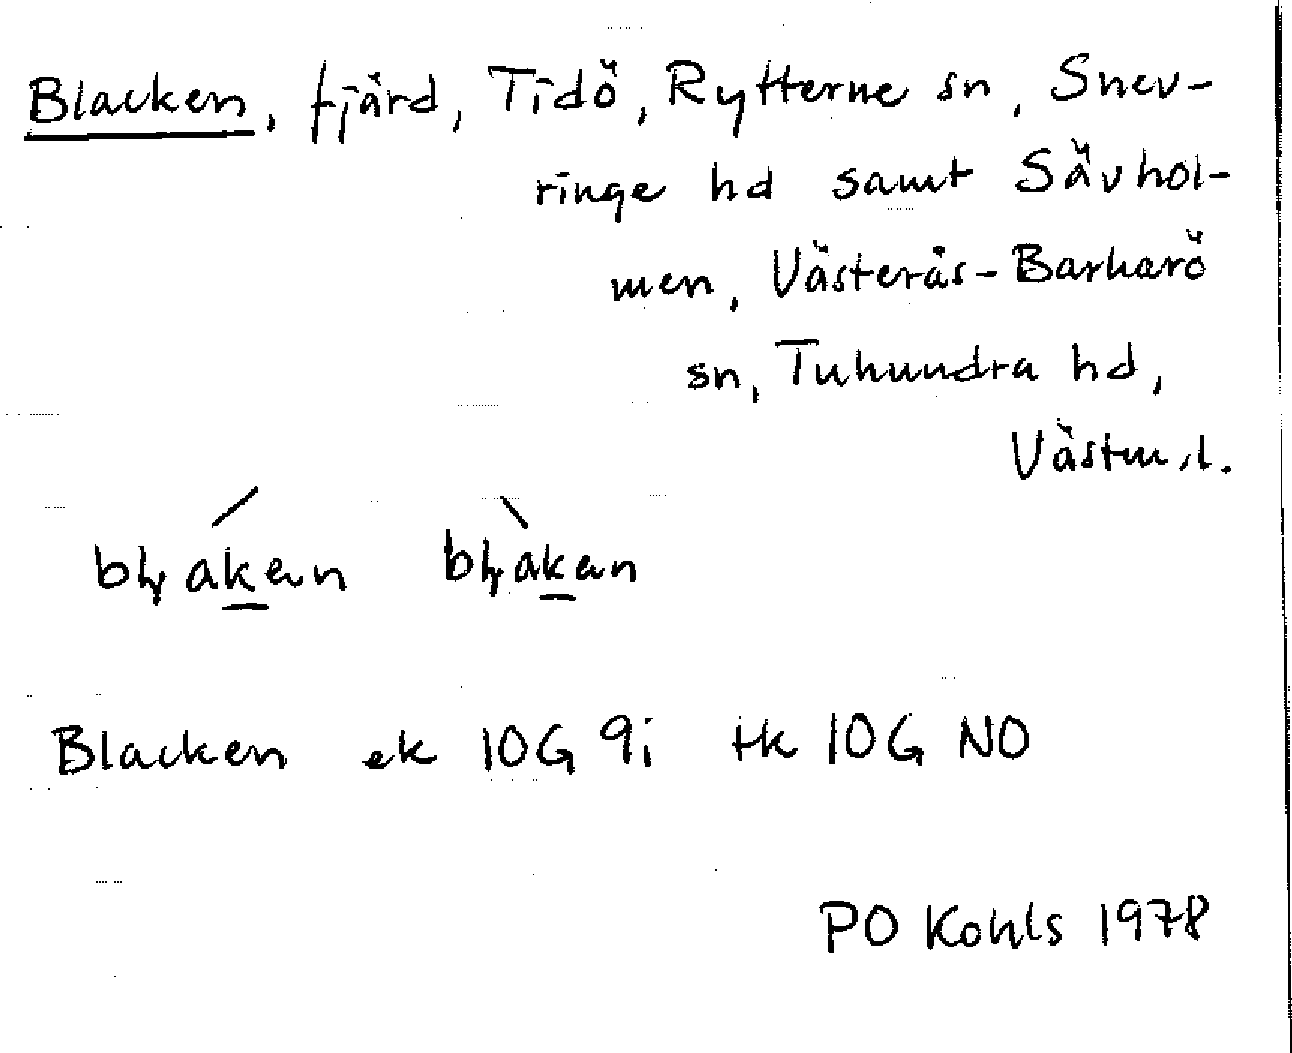 Blacken, fjärd, Tidö, Rytterne sn, Snev-
ringe hd samt Sävhol-
men, Västerås-Barkarö
sn, Tuhundra hd,
Västml.
Blacken ek 10G 9i tk 10G NO
PO Kohls 1978